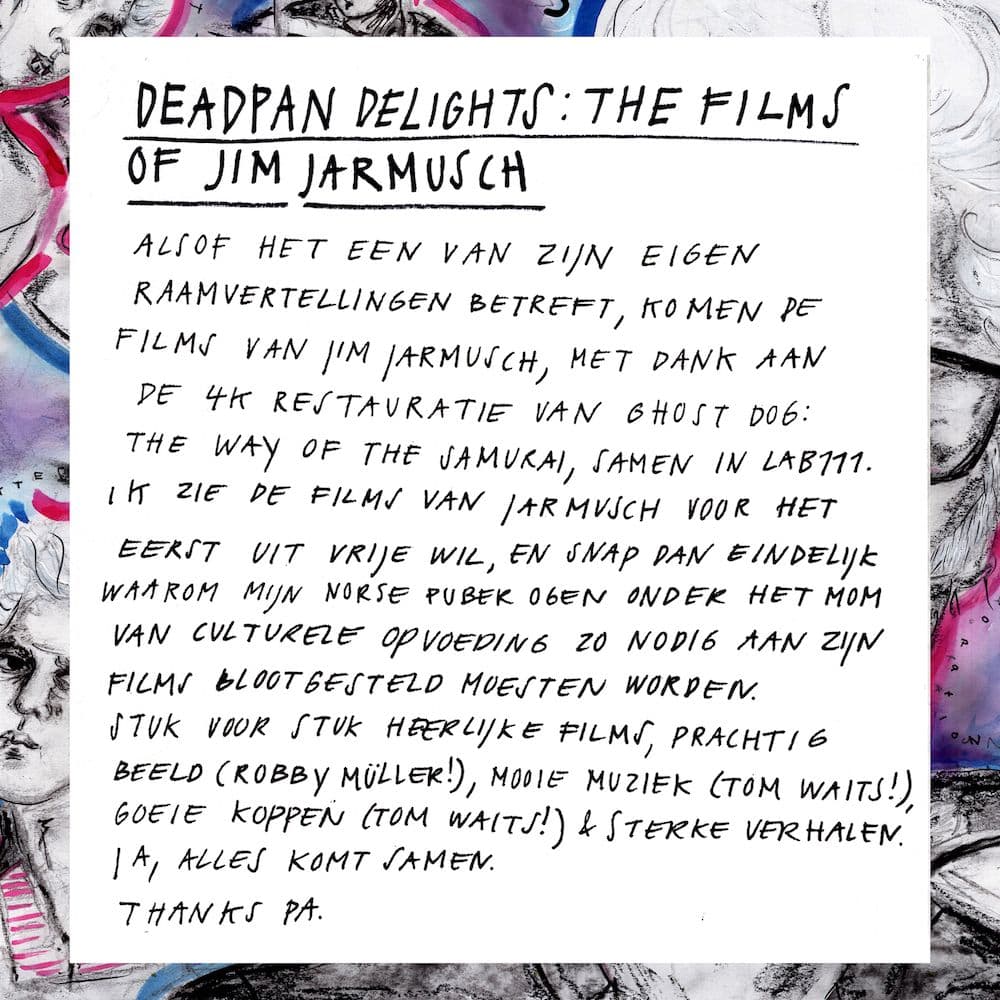 DEADPAN DELIGHTS: THE FILMS
OF JIM JARMUSCH
ALSOF HET EEN VAN ZIJN EIGEN
RAAMVERTELLINGEN BETREFT, KOMEN DE
FILMS VAN JIM JARMUSCH, MET DANK AAN
DE 4K RESTAURATIE VAN GHOST DOG:
THE WAY OF THE SAMURAI, SAMEN IN LAB111.
IK ZIE DE FILMS VAN JARMUSCH VOOR HET
EERST UIT VRIJE WIL, EN SNAP DAN EINDELIJK
WAAROM MIJN NORSE PUBER OGEN ONDER HET MOM
VAN CULTURELE OPVOEDING ZO NODIG AAN ZIJN
FILMS BLOOTGESTELD MOESTEN WORDEN.
STUK VOOR STUK HEERLIJKE FILMS, PRACHTIG
BEELD (ROBBY MÜLLER!), MOOIE MUZIEK (TOM WAITS!),
GOEIE KOPPEN (TOM WAITS!) & STERKE VERHALEN.
JA, ALLES KOMT SAMEN.
THANKS PA.